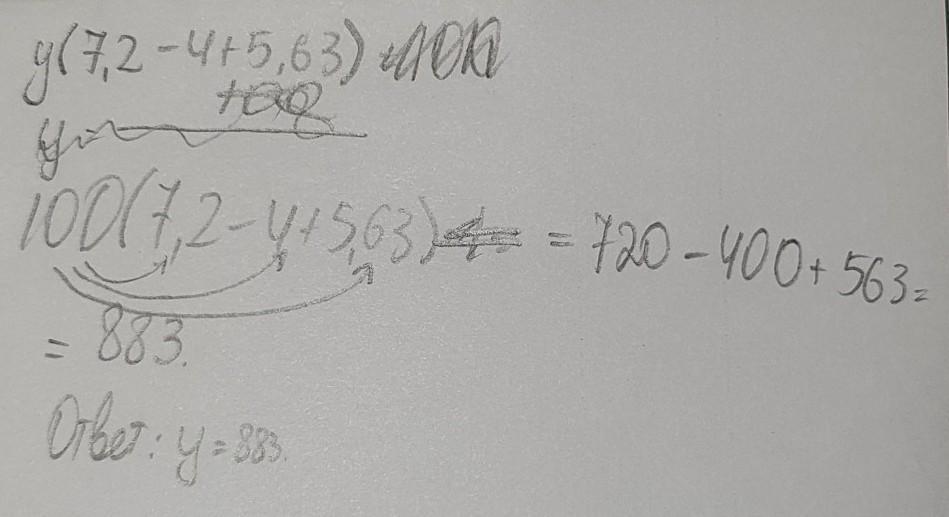 y(7,2-4+5,63)
y=
100(7,2-4+5,63) = 720-400+563=
= 883.
Ответ: y=883.